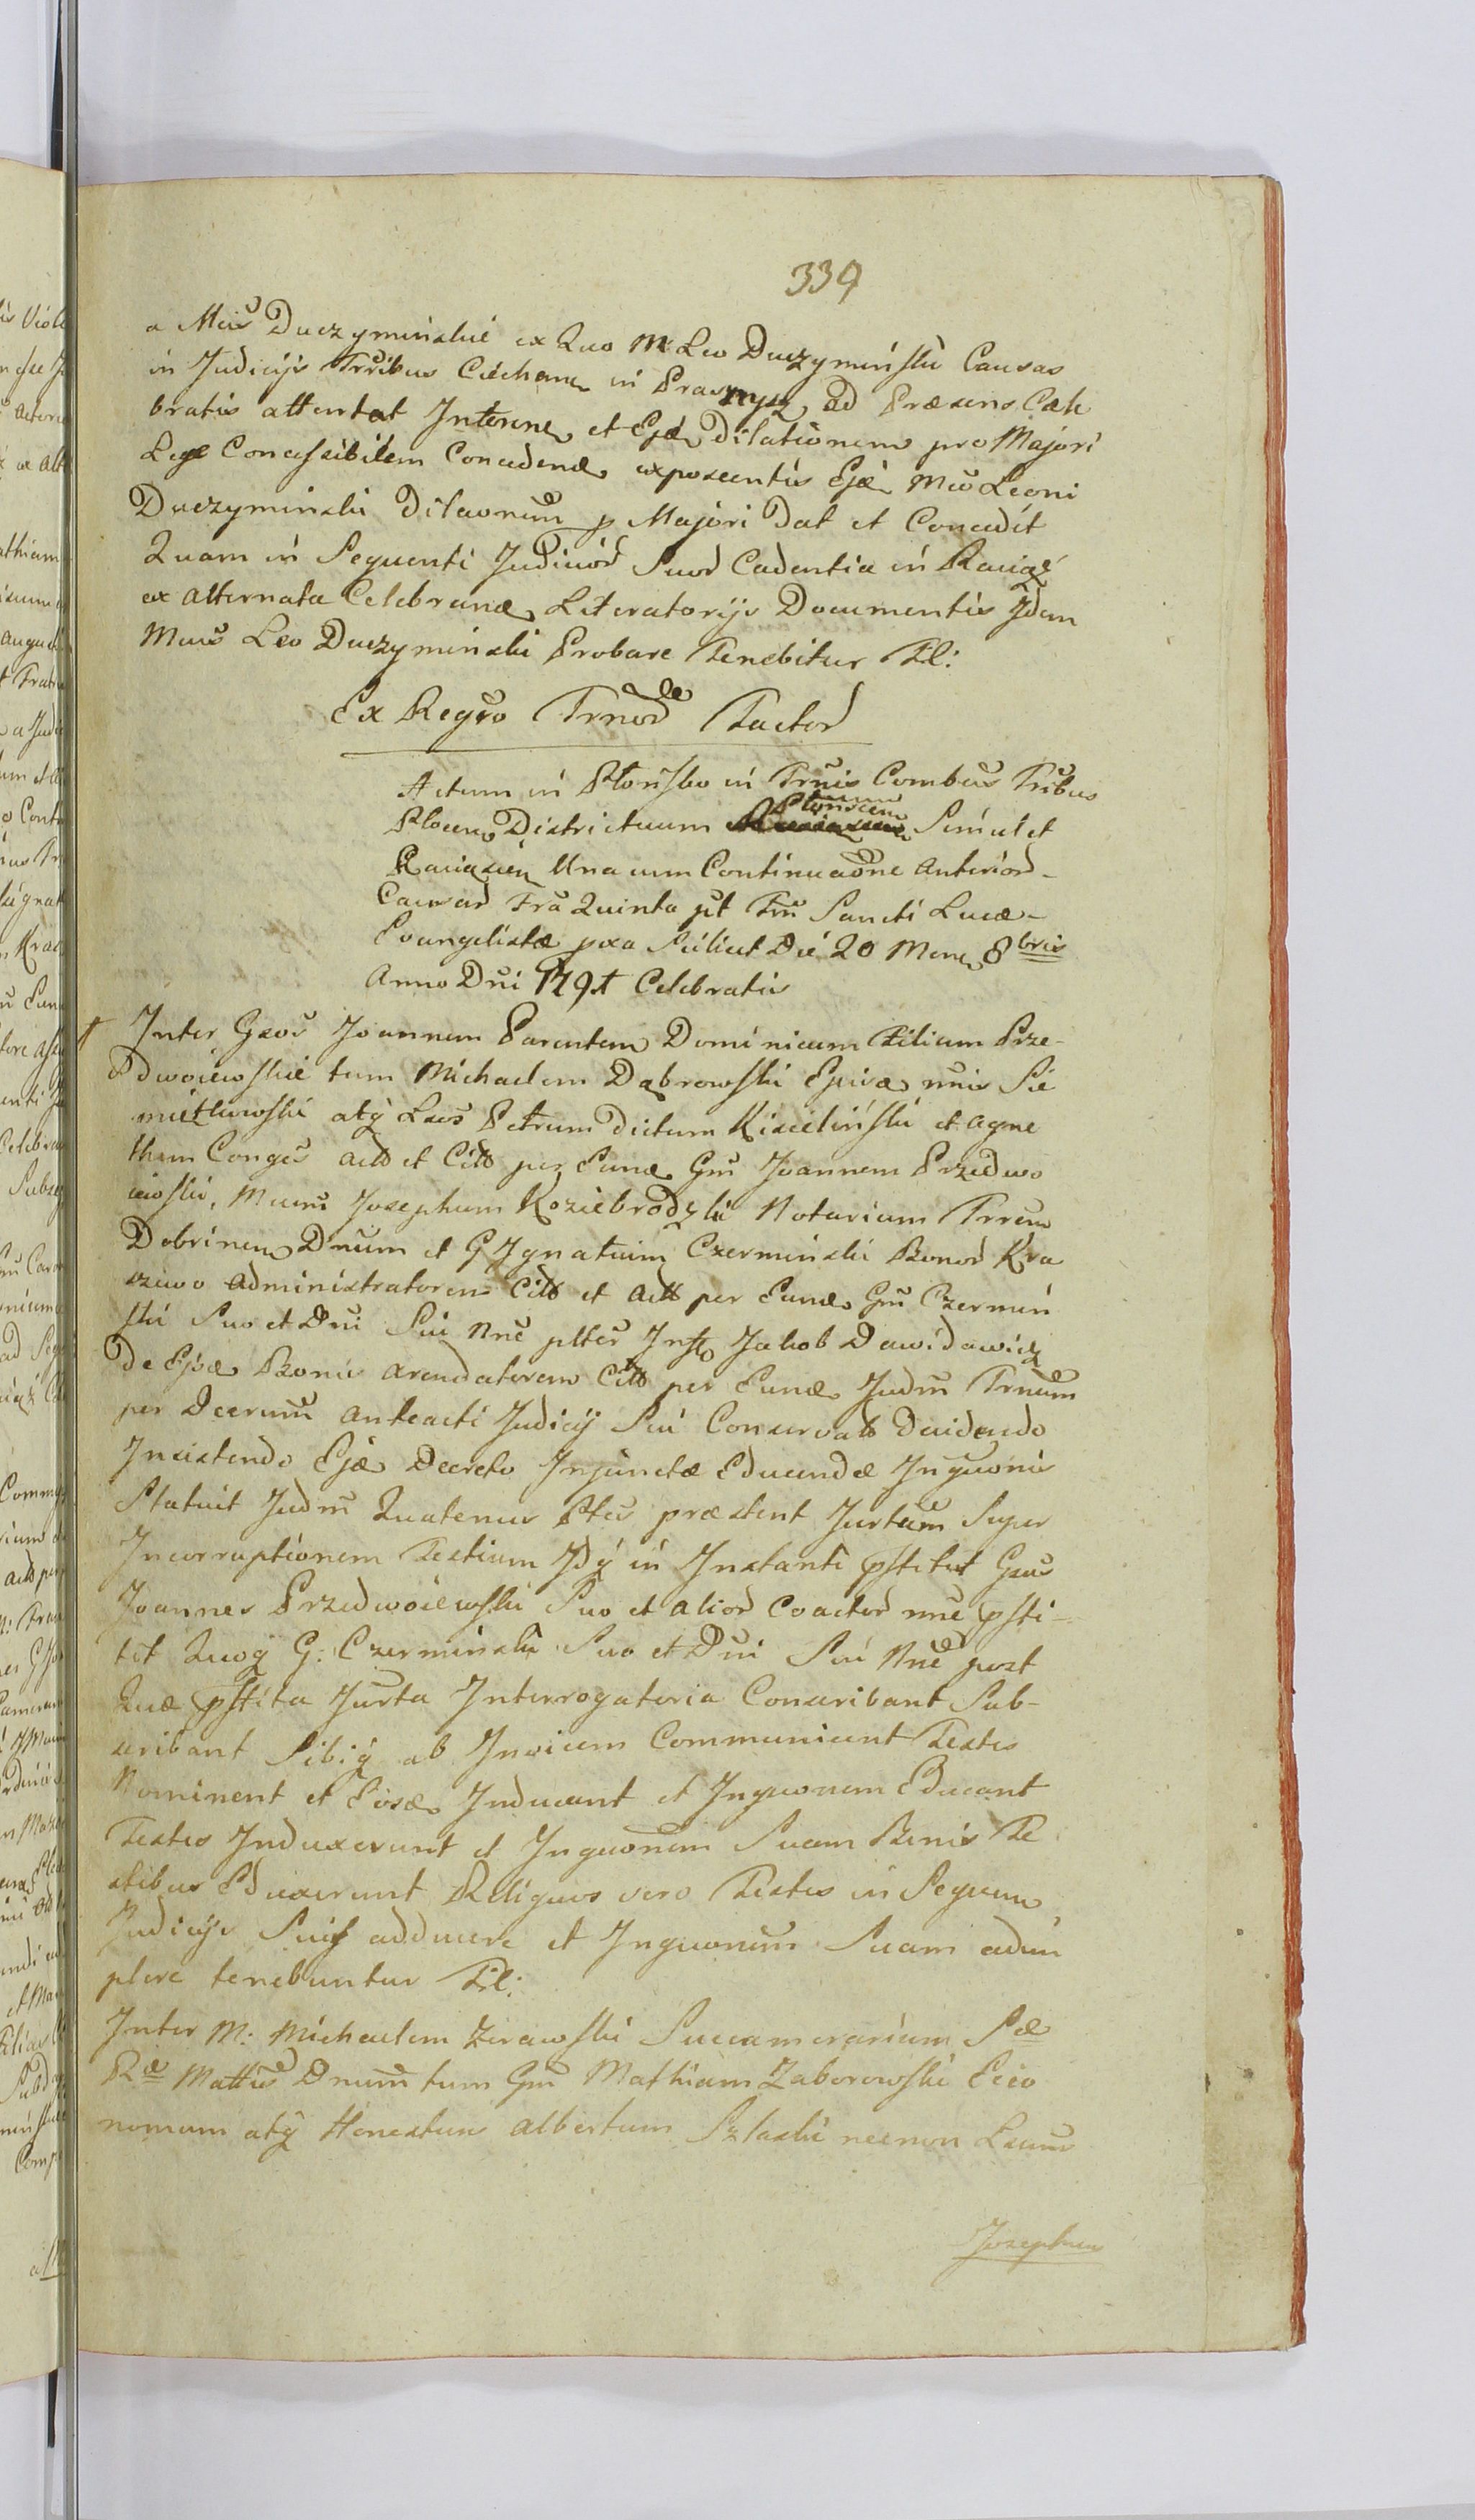 339
a Mcis Duczyminskie ex Quo M Leo Duczyminski Causas
in Judicijs Trribus Ciechane in Prasnysz ad Præsens Cæle
bratis attentat Interene et Ejd Dilationem pro Majori
Lege Concessibilem Concedene exposcentis Ejd Mco Leoni
Duczyminski Dilaonem p Majori Dat et Concedit
Quam in Sequenti Judicior Suor Cadentia in Raciąż
ex alternata Celebrane Literatorijs Documentis Idem
Mcus Leo Duczyminski Probare Tenebitur Tl:
Ex Regro Trnor Tactor
Actum in Płońsko in Trnis Combus Tribus
Plocen Districtuum Płonscen Simul et
Raciązien Una cum Continuaone Anterior
Causar Fra Quinta pt Ftm Sancti Lucæ
Evangelistæ pxa Scilicet Die 20 Mens 8bris
Anno Dni 1791 Celebratis
Inter Gsos Joannem Parentem Dominicum Filium Prze-
dwoiewskie tum Michaelem Dąbrowski Episæ nnis Sie
miętkowski atq Lsos Petrum dictum Kisieliński et agne
tham Conges acto et Cito per Eund Gm Joannem Przedwo
iewski, Mcum Josephum Koziebrodzki Notarium Trrem
Dobrinen Dnum et G Ignatium Czerminski Bonor Kra
sziwo administratorem Cito et acto per Eund Gm Czermin
ski Suo et Dni Sui nne ptter Insto Jakob Dawidowicz
de Ejsd Bonis arendatorem Cito per Eund Judm Trnum
per Decrum anteacti Judicij Sui Conservato Decidendo
Insistendo Ejd Decreto Injunctæ Educendæ Inquonis
Statuit Judm Quatenus Ptes præstent Jurtum Super
Incorruptionem Testium Idq in Instanti pstitit Gsus
Joannes Przedwoiewski Suo et alior Coactor nne psti-
tit Quoq G: Czerminski Suo et Dni Sui Nne post
Quæ pstita Jurta Interrogatoria Conscribant Sub-
scribant Sibiq ab Invicem Communicent Testes
Nominent et Eosd Inducant et Inquonem Educant
Testes Induxerunt et Inquonem Suam Benis Te
stibus Eduxerunt Reliquos vero Testes in Sequen
Judicijs Suis adducere et Inquonem Suam adim
plere tenebuntur Tl:
Inter M: Michaelem Zerawski Succamerarium Sæ
Ræ Mattis Dnum tum Gm Mathiam Zaborowski Eco
nomum atq Honestum Albertum Szlaski necnon Lsum
Josephum